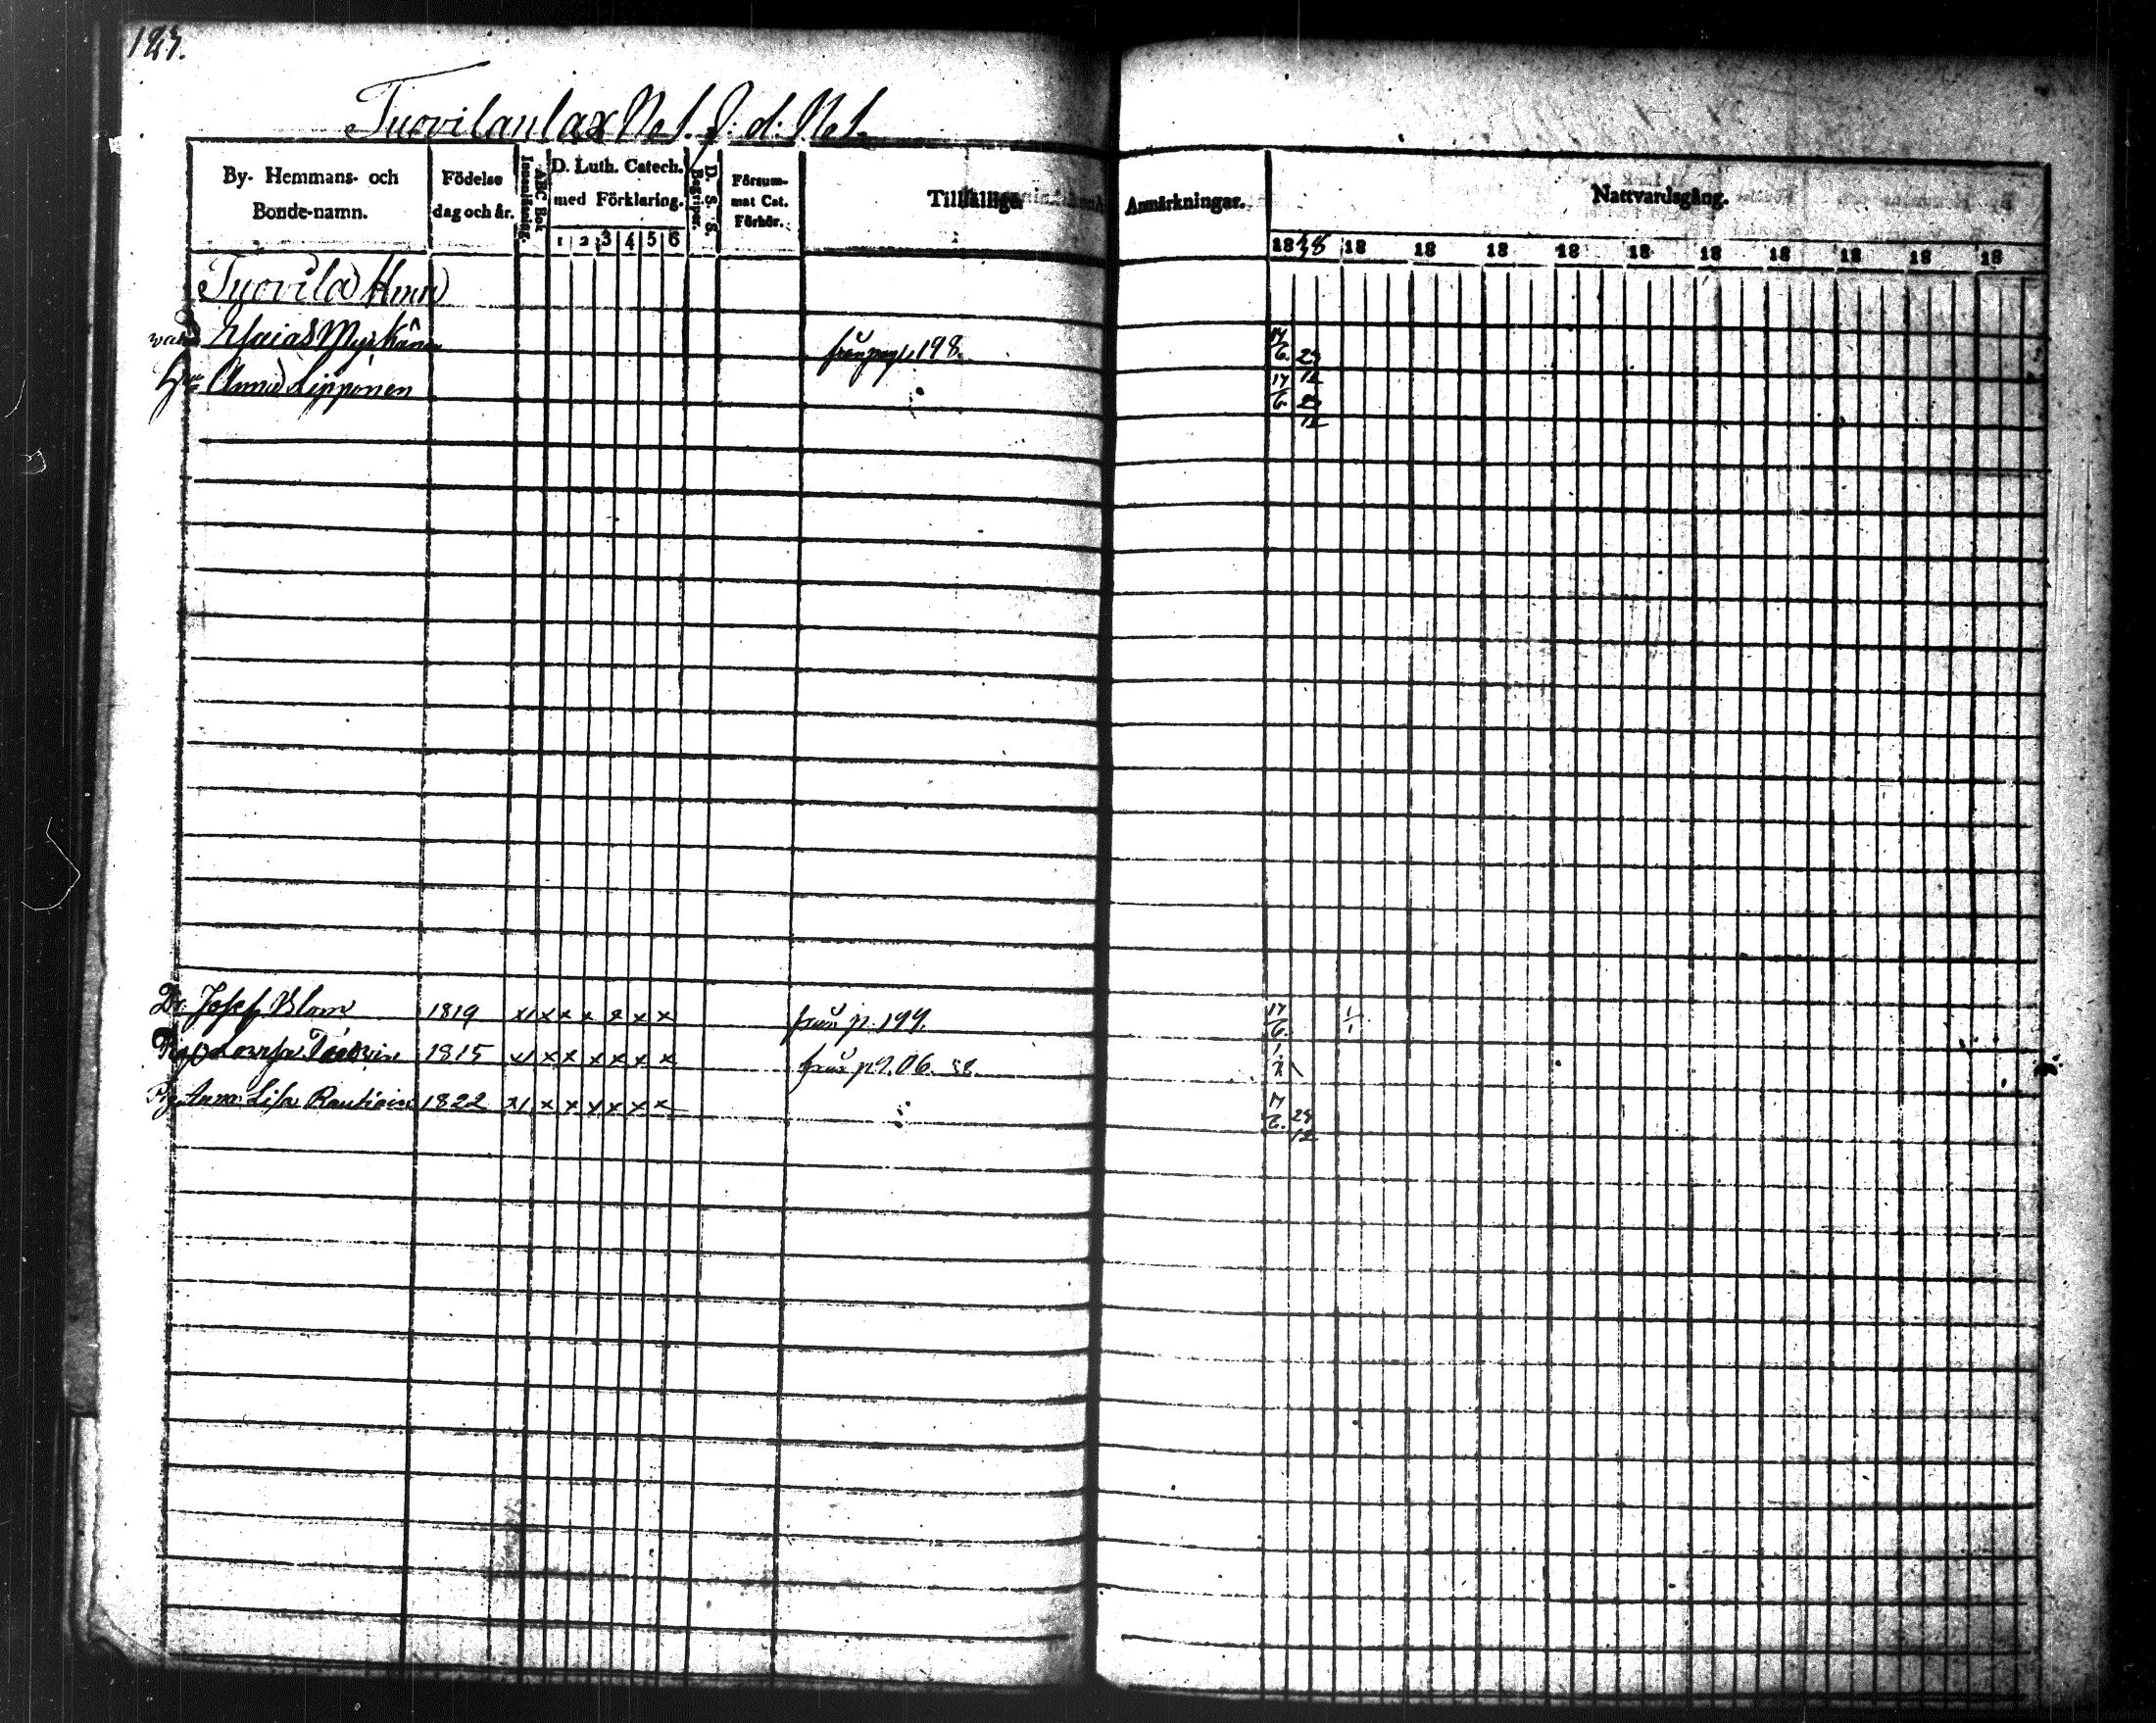 127.
Tuovilanlax No 1. J. d. No 1.
By- Hemmans- och Bonde-namn.
Födelse dag och år.
ABC Bok
Innanläsning.
D. Luth. Catech. med Förklaring.
1 2 3 4 5 6
D. S. S.
Begriper.
Försummat Cat. Förhör.
Tillfälliga
Anmärkningar.
Nattvardsgång.
1848 18 18 18 18 18 18 18 18 18 18
Tuovila Hem
Esaias Myrkänen från pag. 198. 17/6. 29/12
Hu Anna Lipponen 17/6. 29/12
Dr. Josef Blom 1819 x x x x 2 x x från p. 199. 17/6. 1/1
Pig. Lovisa 1815 x x x x x x x från p 206.
Pig. Anna Lisa Rautiain 1822 x x x x x x x 17/6. 29/12